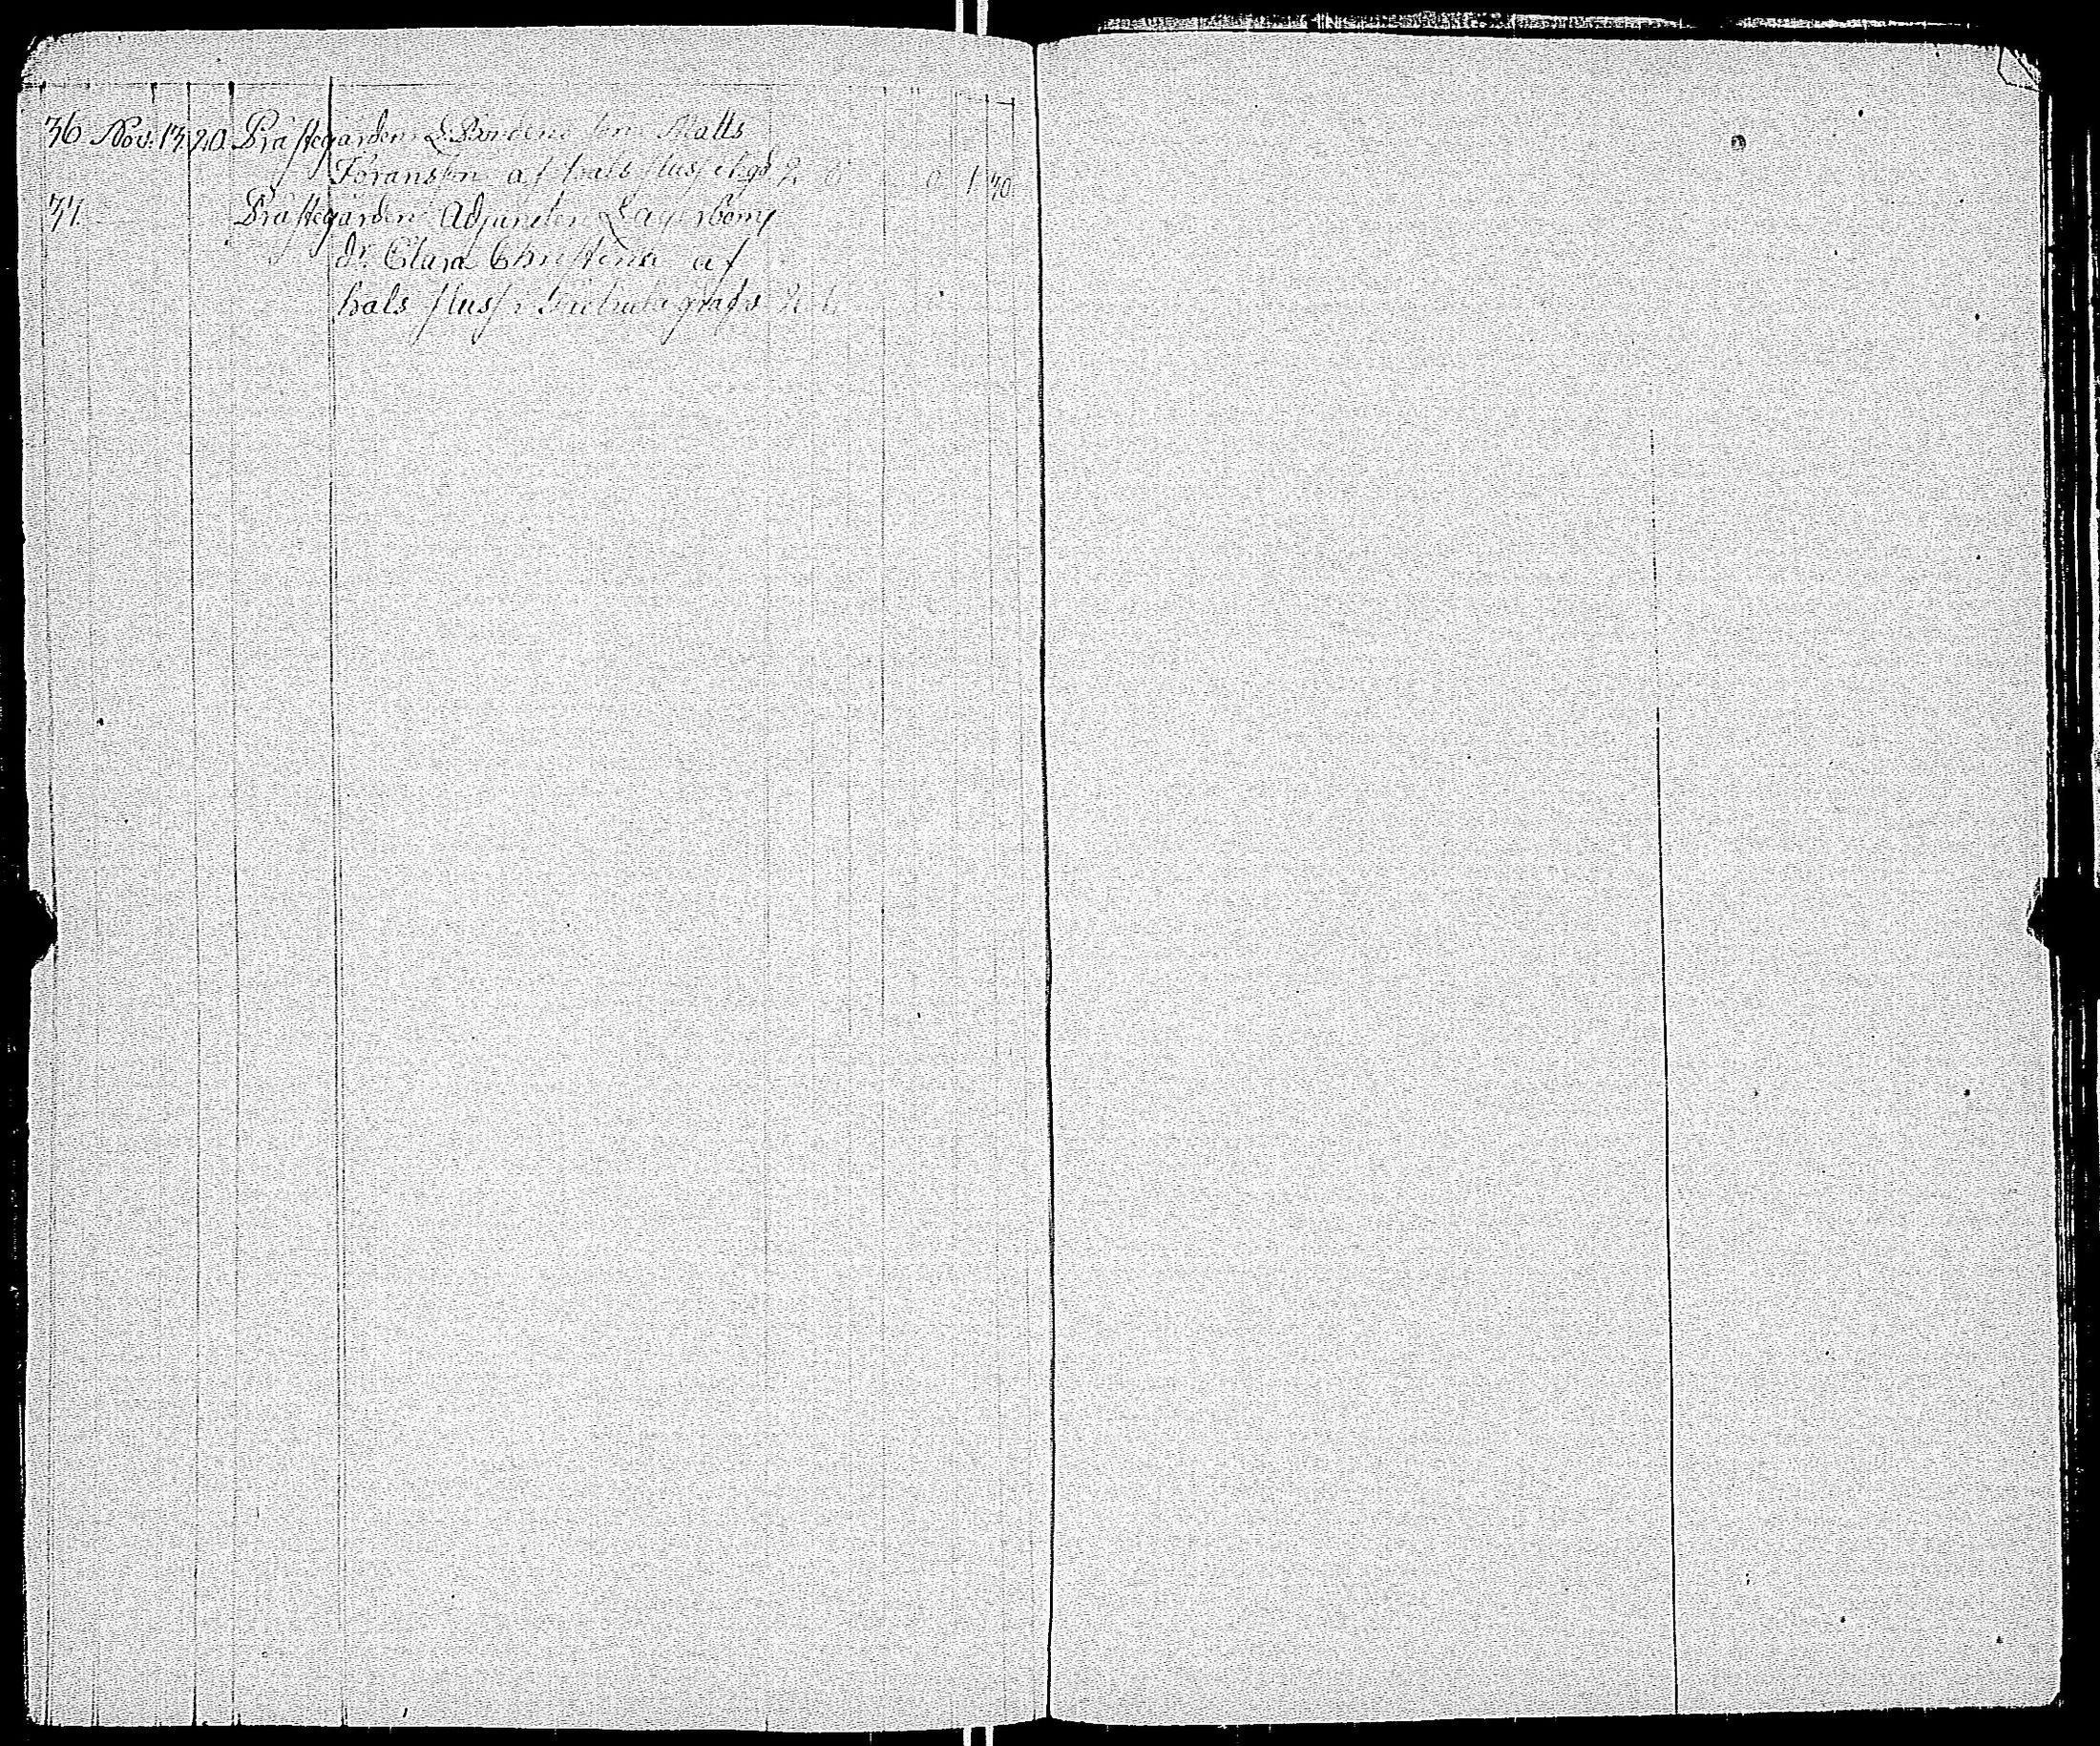 36 Nov. 13 20 Prästegården L. Bondens son Matts
Föransson af hals fluss 0 1 30
37. Prästegården Adjuncten Lagerbom
dr. Clara Christina af
hals fluss i